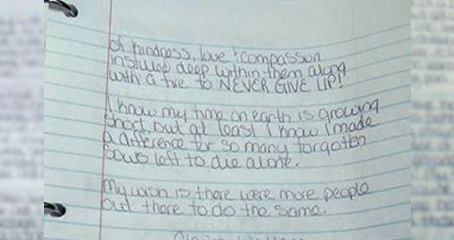 of kindness, love & compassion
instilled deep within them along
with a fire to NEVER GIVE UP!
I know my time on earth is growing
short, but at least I know I made
a difference for so many forgotten
souls left to die alone.
My wish is there were more people
out there to do the same.